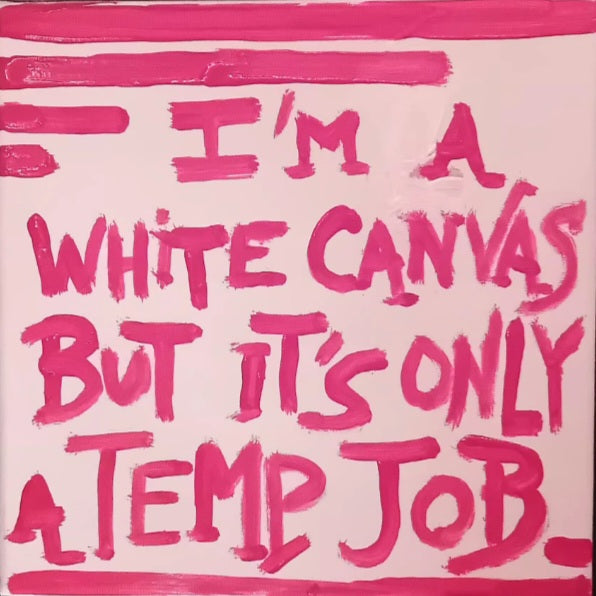 I'M A
WHiTE CANVAS
BUT iT'S ONLY
A TEMP JOB